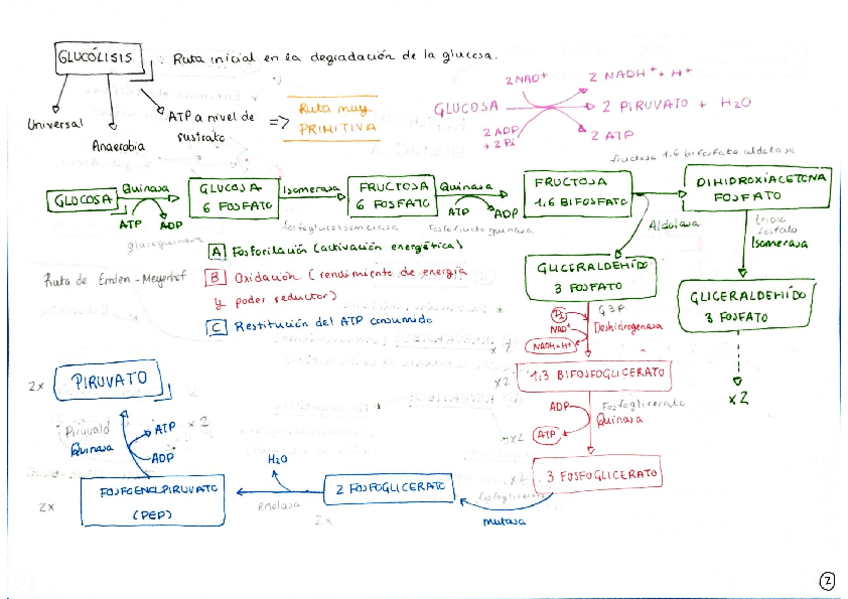 GLUCÓLISIS
Ruta inicial en la degradación de la glucosa.
Universal
Anaerobia
ATP a nivel de
sustrato
=> Ruta muy
PRIMITIVA
GLUCOSA
2 NAD+
2 ADP
+ 2 Pi
2 NADH+ + H+
2 PIRUVATO + H2O
2 ATP
GLUCOSA
Quinasa
ATP ADP
glucoquinasa
GLUCOSA
6 FOSFATO
Isomerasa
fosfoglucoisomerasa
FRUCTOSA
6 FOSFATO
Quinasa
ATP ADP
fosfofructoquinasa
FRUCTOSA
1,6 BIFOSFATO
fructosa 1.6 bifosfato aldolasa
Aldolasa
DIHIDROXIACETONA
FOSFATO
triosa
fosfato
Isomerasa
GLICERALDEHÍDO
3 FOSFATO
x2
GLICERALDEHÍDO
3 FOSFATO
Ruta de Emden-Meyerhof
A Fosforilación (activación energética)
B Oxidación (rendimiento de energía
y poder reductor)
C Restitución del ATP consumido
Pi
NAD+
NADH+H+
G3P
Deshidrogenasa
x2
x2
1,3 BIFOSFOGLICERATO
ADP
ATP
Fosfoglicerato
Quinasa
x2
x2
3 FOSFOGLICERATO
fosfoglicerato
mutasa
2 FOSFOGLICERATO
H2O
enolasa
2x
FOSFOENOLPIRUVATO
(PEP)
2x
Piruvato
Quinasa
ATP
ADP
x2
2x
PIRUVATO
2